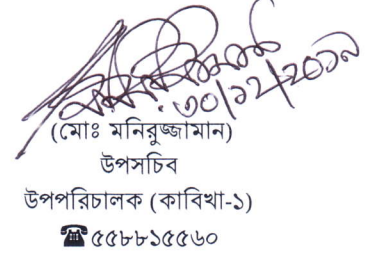 ৩০/১২/২০১৯
(মোঃ মনিরুজ্জামান)
উপসচিব
উপপরিচালক (কাবিখা-১)
☎৫৫৮৮১৫৫৬০